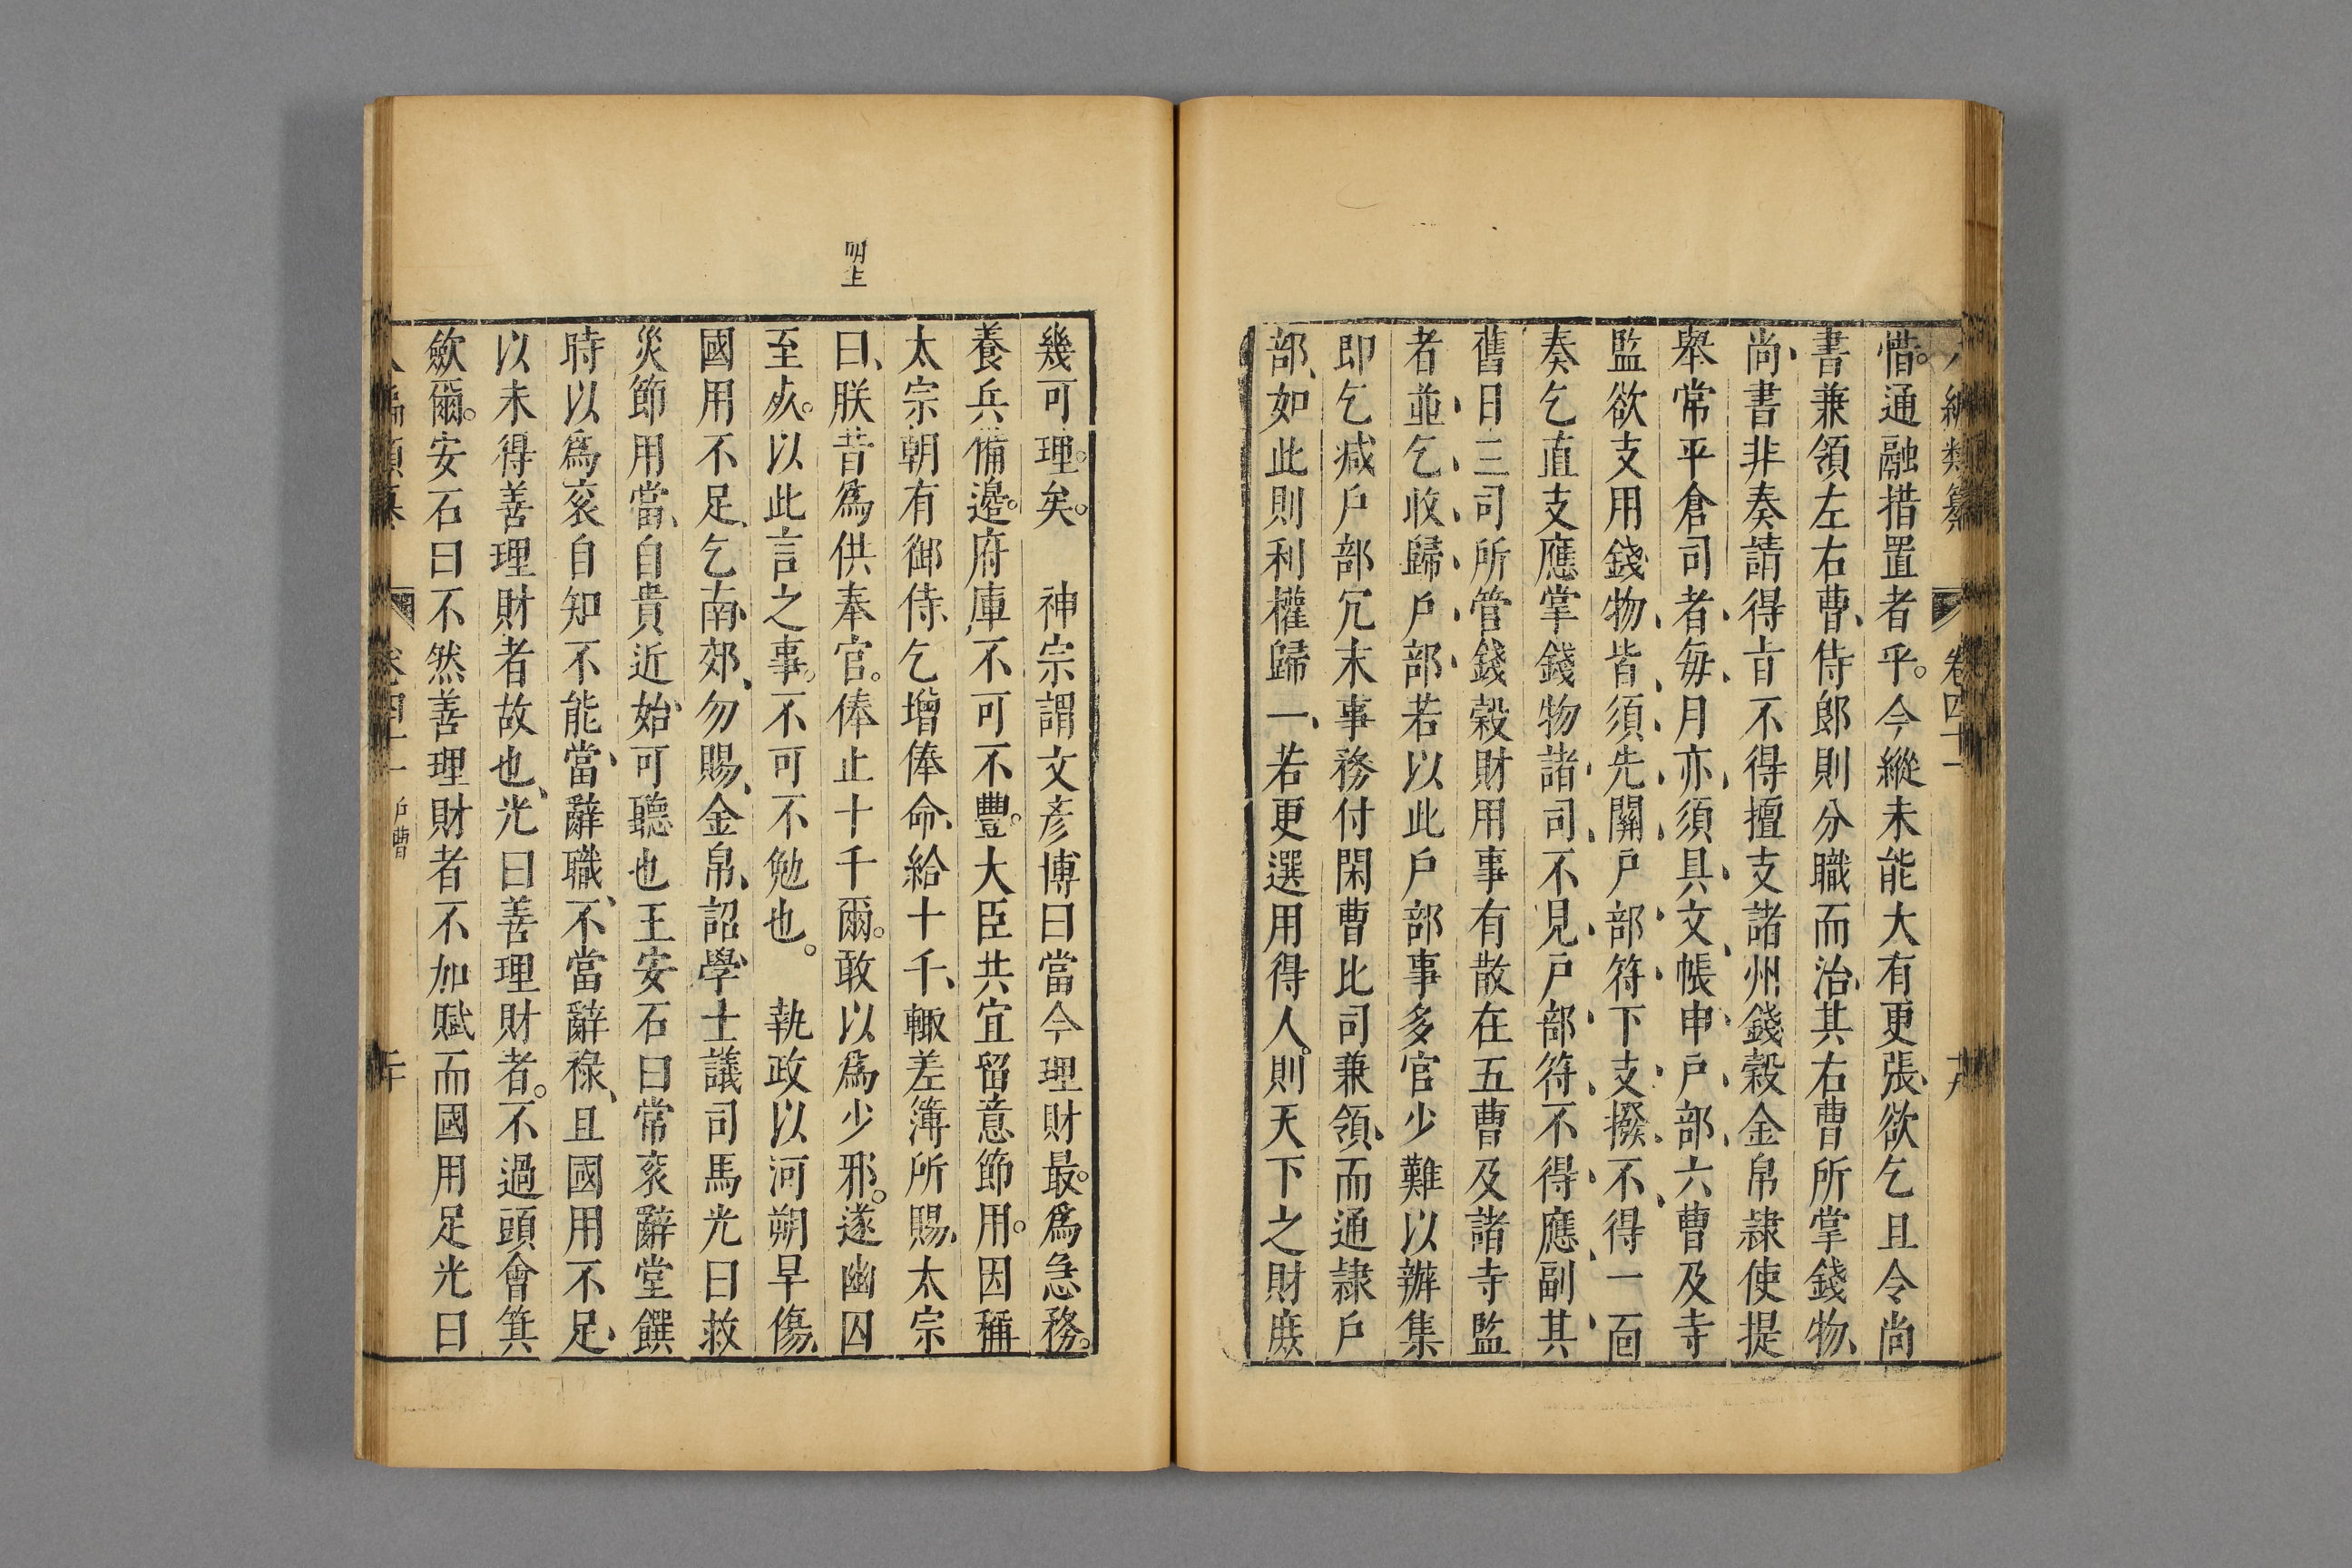 惜通融措置者乎今縱未能大有更張欲乞且令尚
書兼領左右曹侍郎則分職而治其右曹所掌錢物
尚書非奏請得㫖不得擅支諸州錢穀金帛隷使提
舉常平倉司者每月亦須具文帳申戶部六曹及寺
監欲支用錢物皆須先關戶部符下支撥不得一面
奏乞直支應掌錢物諸司不見戶部符不得應副其
舊日三司所管錢穀財用事有散在五曹及諸寺監
者並乞收歸戶部若以此戶部事多官少難以辦集
即乞减戶部冗末事務付閑曹比司兼領而通隷戶
部如此則利權歸一若更選用得人則天下之財庻
幾可理矣　神宗謂文彥博曰當今理財最爲急務
養兵備邊府庫不可不豐大臣共宜留意節用因稱
太宗朝有御侍乞增俸命給十千輙差簿所賜太宗
曰朕昔爲供奉官俸止十千爾敢以爲少邪遂幽囚
至死以此言之事不可不勉也　執政以河朔旱傷
國用不足乞南郊勿賜金帛詔學士議司馬光曰救
災節用當自貴近始可聽也王安石曰常衮辭堂饌
時以爲衮自知不能當辭職不當辭祿且國用不足
以未得善理財者故也光曰善理財者不過頭會箕
斂爾安石曰不然善理財者不加賦而國用足光曰
卷四十一 戶曹